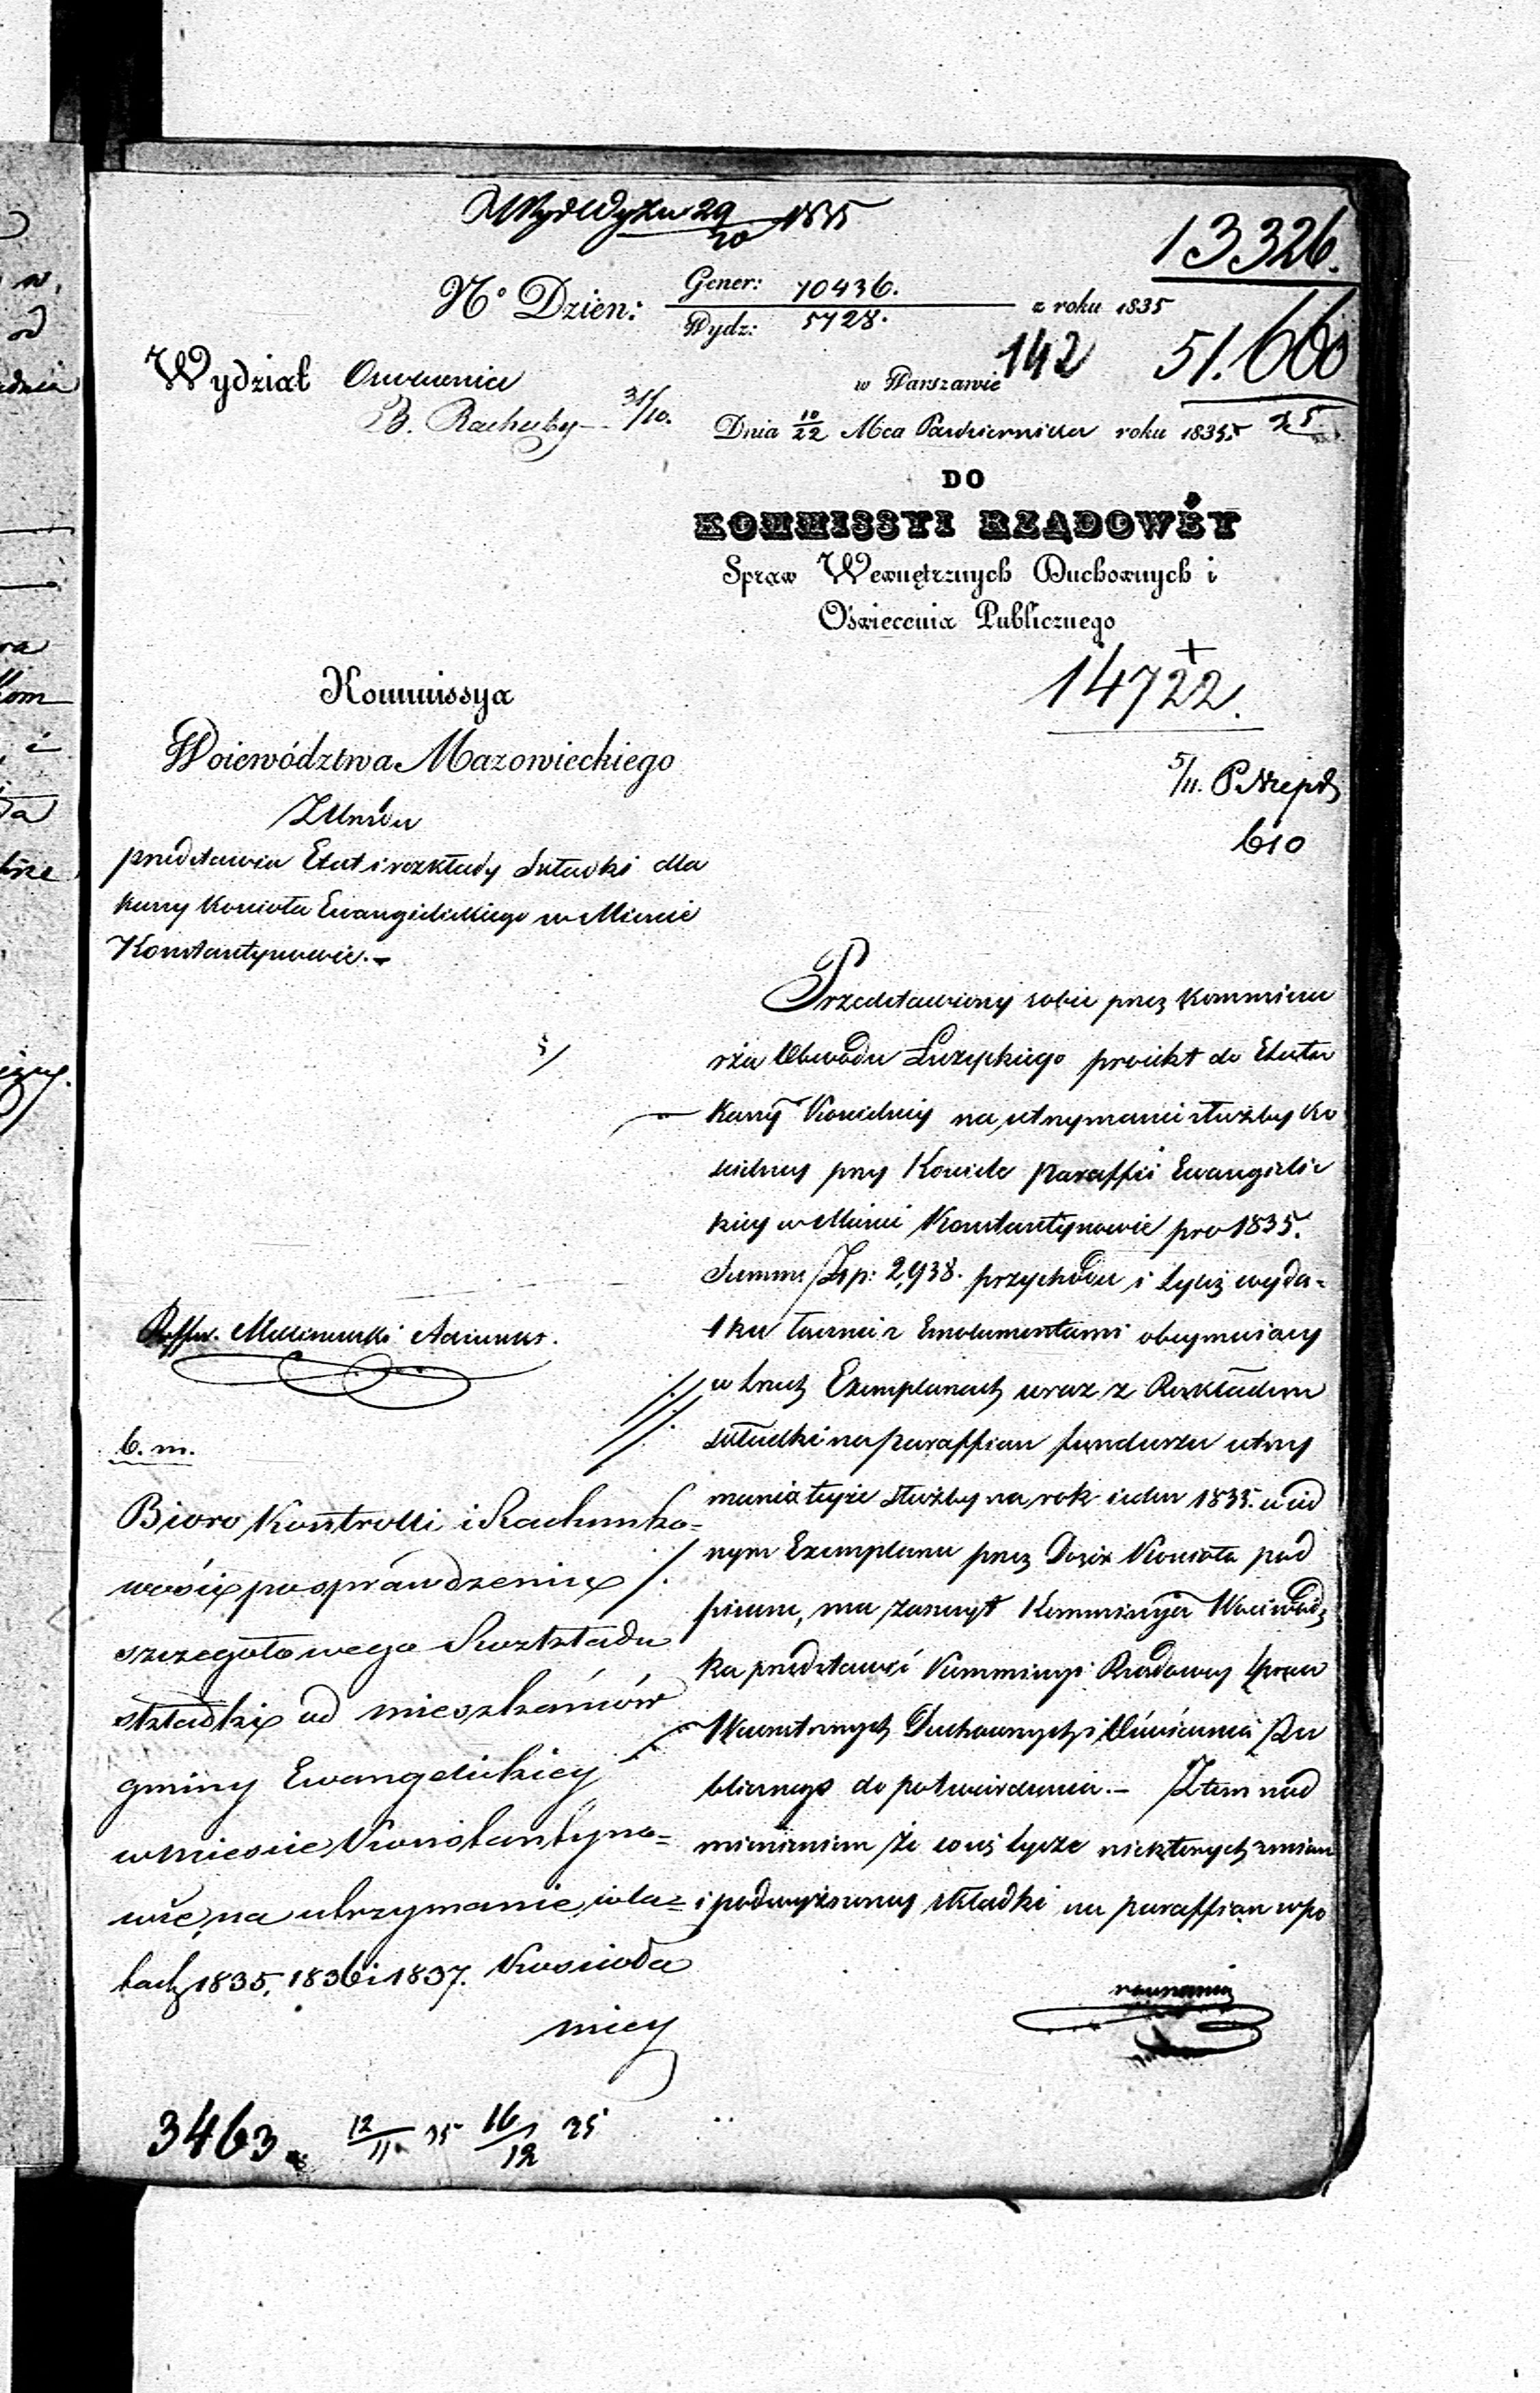 29/10 1835
13326.
N° Dzien: Gener: 10436. z roku 1835
Wydz: 5728.
142 51.660
Wydział Oswiecenia w Warszawie
B. Rachuby 31/10. Dnia 10/22 Mca Pazdziernika roku 1835 25
DO
KOMMISSYI RZĄDOWÉY
Spraw Wewnętrznych Duchownych i
Oświecenia Publicznego
14722.
Kommissya
Woiewództwa Mazowieckiego
5/11.
610
przedstawia Etat i rozkłady składki dla
kassy Kościoła Ewangielickiego w Mieście
Konstantynowie.
Przedstawiony sobie przez Kommissa
rza Obwodu Łęczyckiego proiekt do Etatu
Kassy Kościelney na utrzymanie służby Ko
scielney przy Kościele Paraffii Ewangielic
kiey w Mieście Konstantynowie pro 1835.
Summę Złp: 2,938. przychodu i tyleż wyda-
tku łącznie z Emolumentami obeymuiący
w trzech Exemplarzach wraz z Rozkładem
składki na paraffian funduszu utrzy
mania teyże służby na rok ieden 1835. w
nym Exemplarzu przez Dozór Kościoła pod
pisane, ma zaszczyt Kommissya Woiewódz
ka przedstawić Kommissyi Rządowey Spraw
Wewnętrznych Duchownych i Oświecenia Pu
blicznego do potwierdzenia.- Z tem nad
mienieniem że co się tycze niektorych zmian
i podwyższoney składki na paraffian w po
równaniu
Adiunkt.
b. m.
Bioro Kontrolli i Rachunko=
wości po sprawdzeniu
szczegółowego Rozkładu
składki od mieszkańców
gminy Ewangelickiey
w mieście Konstantyno=
wie, na utrzymanie w la=
tach 1835, 1836 i 1837. Kościoła
3463. 12/11 35 16/12 35